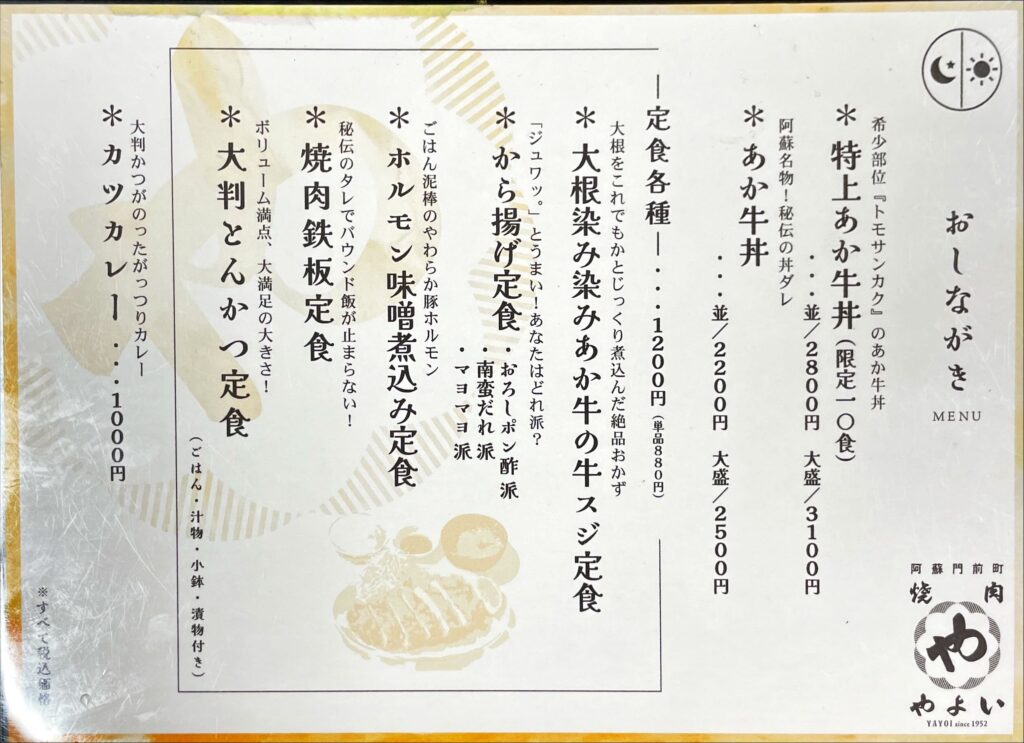 おしながき
MENU
希少部位『トモサンカク』のあか牛丼
＊特上あか牛丼（限定一〇食）
・・・並／2800円　大盛／3100円
阿蘇名物！秘伝の丼ダレ
＊あか牛丼
・・・並／2200円　大盛／2500円
―定食各種―・・・1200円（単品880円）
大根をこれでもかとじっくり煮込んだ絶品おかず
＊大根染み染みあか牛の牛スジ定食
「ジュワッ。」とうまい！あなたはどれ派？
＊から揚げ定食
・おろしポン酢派
・南蛮だれ派
・マヨマヨ派
ごはん泥棒のやわらか豚ホルモン
＊ホルモン味噌煮込み定食
秘伝のタレでバウンド飯が止まらない！
＊焼肉鉄板定食
ボリューム満点、大満足の大きさ！
＊大判とんかつ定食
（ごはん・汁物・小鉢・漬物付き）
大判かつがのったがっつりカレー
＊カツカレー・・・1000円
※すべて税込価格
阿蘇門前町
焼肉
や
やよい
YAYOI since 1952